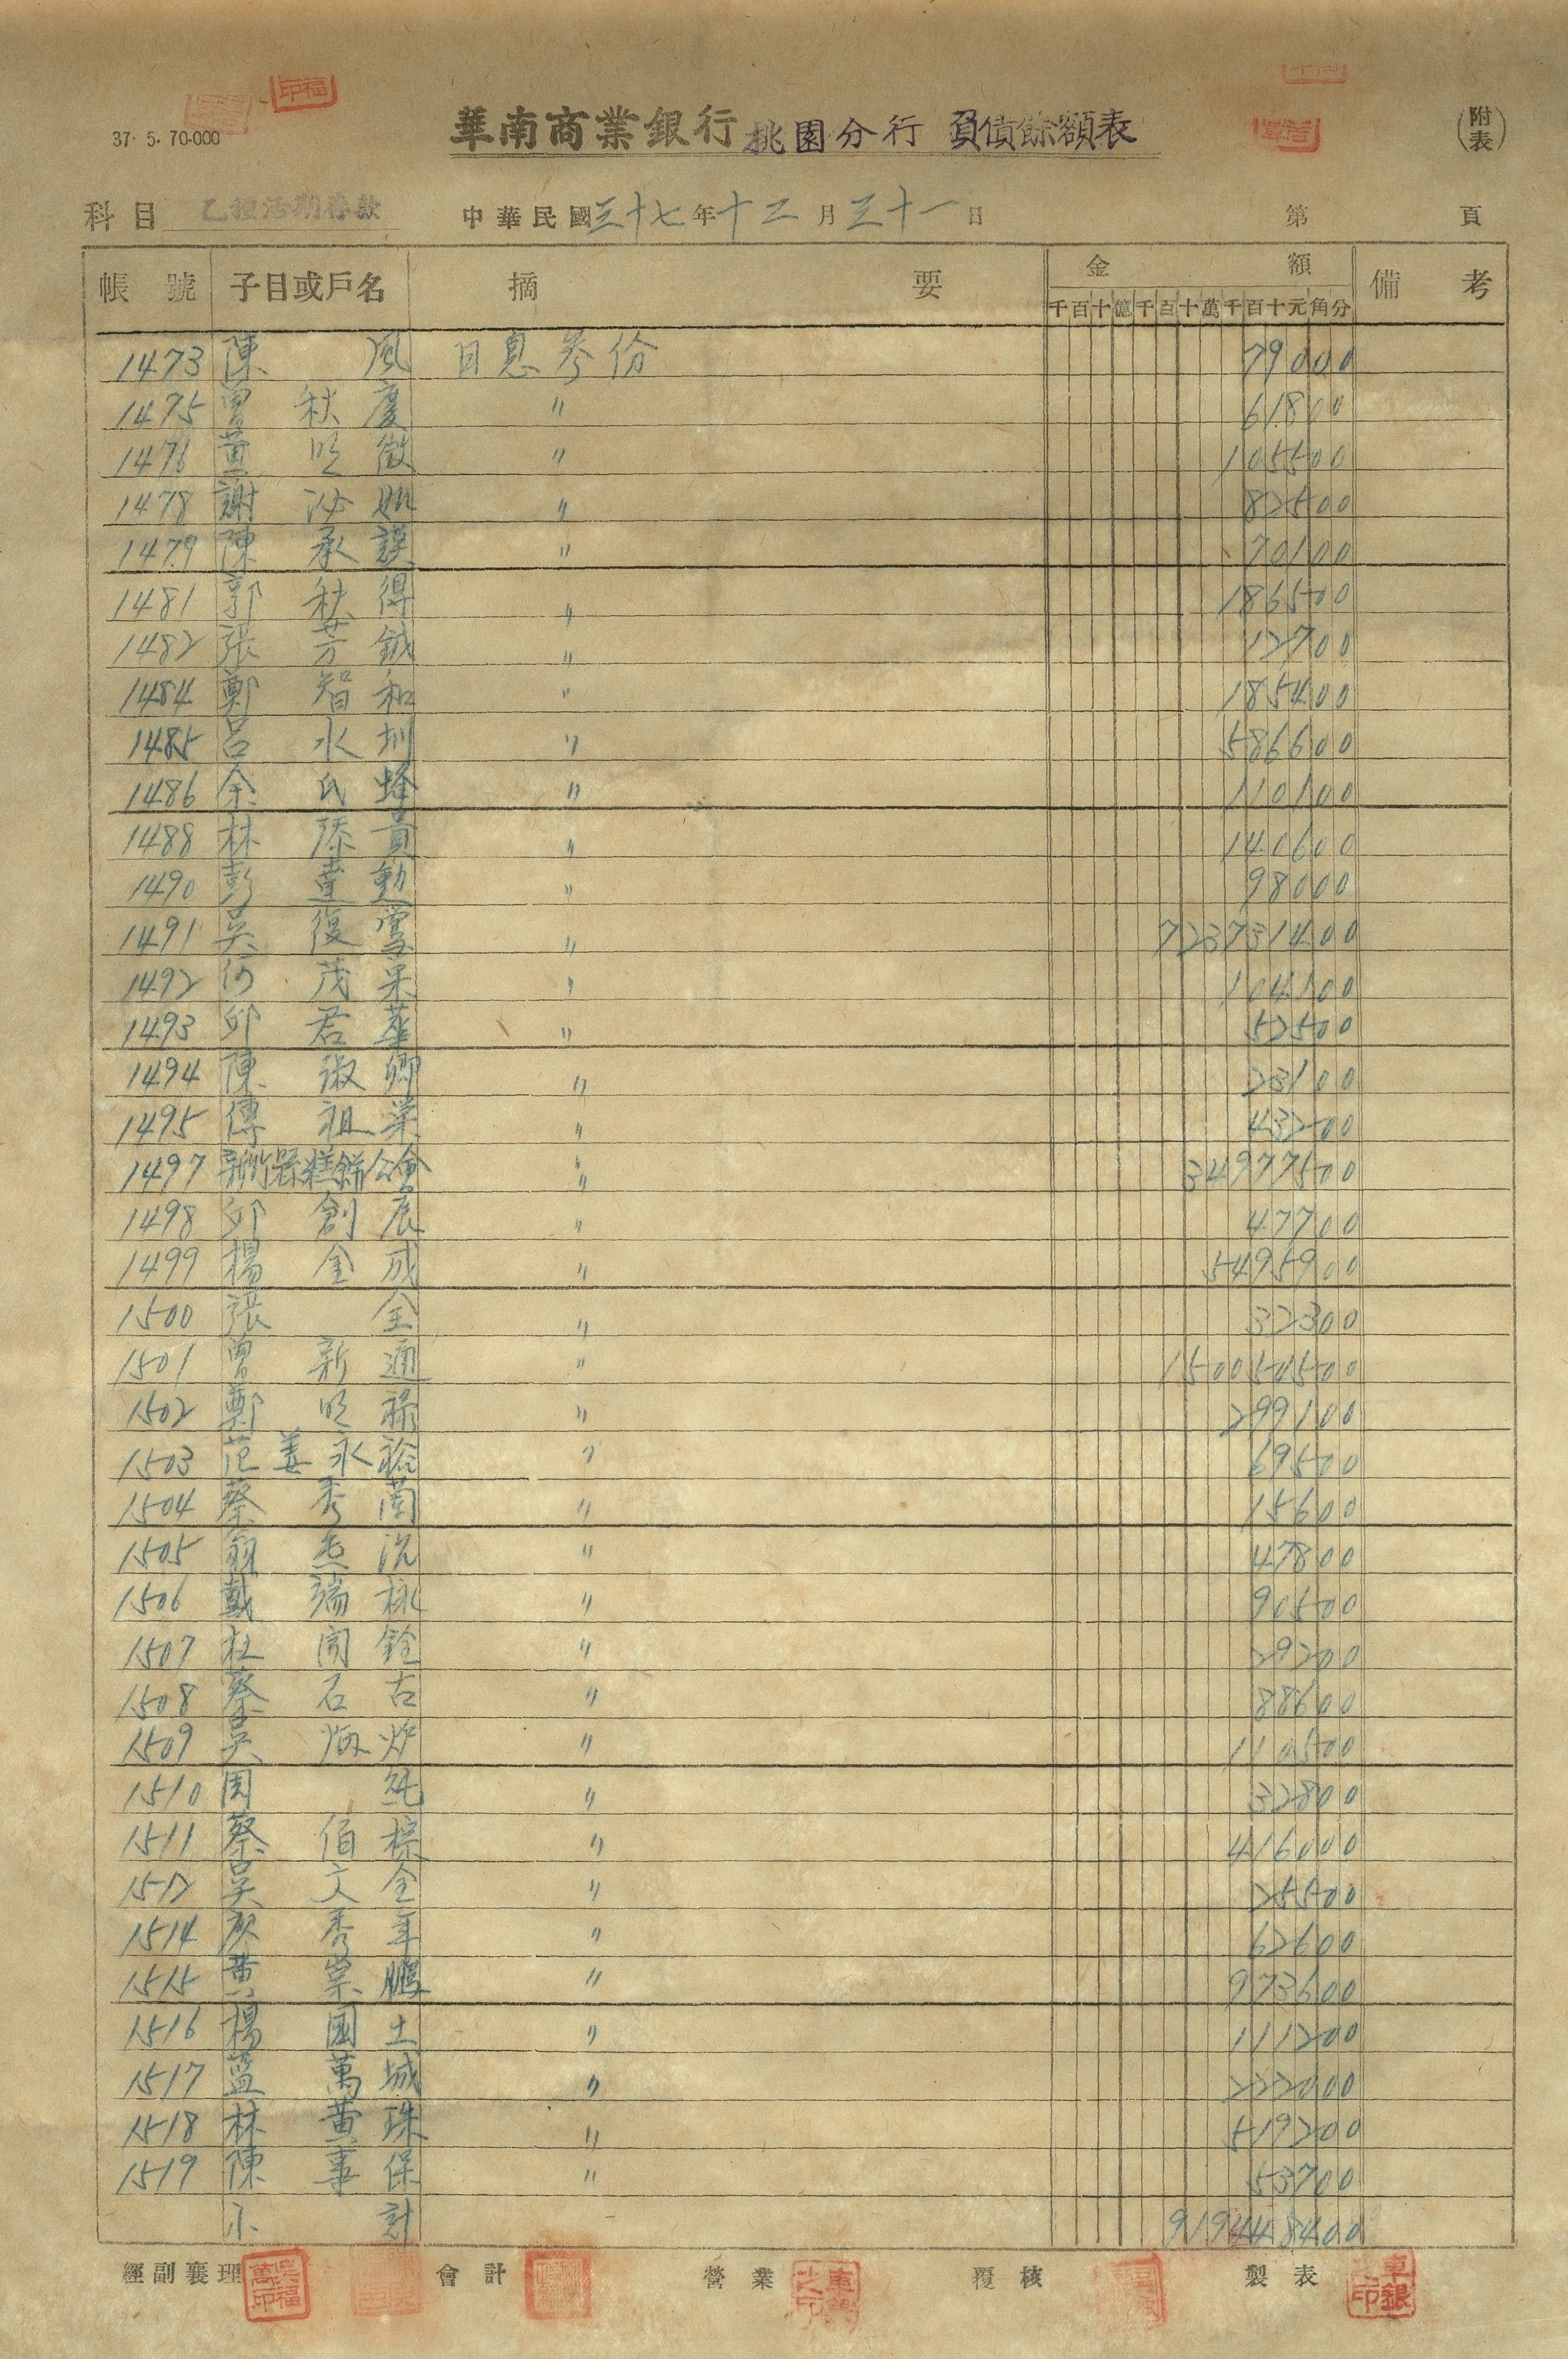 37. 5. 70.000
華南商業銀行桃園分行 負債餘額表
(附表)
科目 乙種活期存款 中華民國三十七年十二月三十一日 第 頁
帳號 子目或戶名 摘要 金額 備考
千百十億千百十萬千百十元角分
1473 陳 風 日息參份 79000
1475 曾秋慶 〃 61800
1476 黃明徵 〃 105500
1478 謝 〃 82500
1479 陳承謨 〃 70100
1481 郭秋得 〃 186500
1482 張芳鉞 〃 12700
1484 鄭智和 〃 185400
1485 呂水圳 〃 586600
1486 余氏蜂 〃 110100
1488 林添貢 〃 140600
1490 彭達勳 〃 98000
1491 吳復鴬 〃 723731400
1492 何茂果 〃 104100
1493 邱君華 〃 52500
1494 陳淑卿 〃 23100
1495 傳祖業 〃 43200
1497 新竹縣糕餅公會 〃 34977500
1498 邱創展 〃 47700
1499 楊金成 〃 5495900
1500 張 全 〃 32300
1501 曾新通 〃 150050500
1502 鄭明祿 〃 299100
1503 范姜永裕 〃 69500
1504 蔡秀蘭 〃 15600
1505 翁 〃 47800
1506 戴瑞 〃 90500
1507 杜開銓 〃 29200
1508 蔡石古 〃 88600
1509 吳炳炉 〃 110500
1510 周 純 〃 32800
1511 蔡伯棕 〃 416000
1512 吳文全 〃 25500
1514 秀年 〃 62600
1515 黃崇鵬 〃 973600
1516 楊國土 〃 111200
1517 藍萬城 〃 222000
1518 林黃珠 〃 519200
1519 陳事保 〃 53700
小計 919448400
經副襄理 會計 營業 覆核 製表